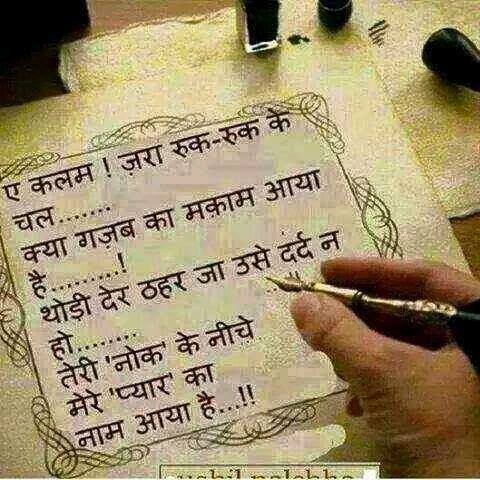 ए कलम ! ज़रा रुक-रुक के
चल.......
क्या गज़ब का मक़ाम आया
है.........!
थोडी देर ठहर जा उसे दर्द न
हो.........
तेरी 'नोक' के नीचे
मेरे 'प्यार' का
नाम आया है...!!